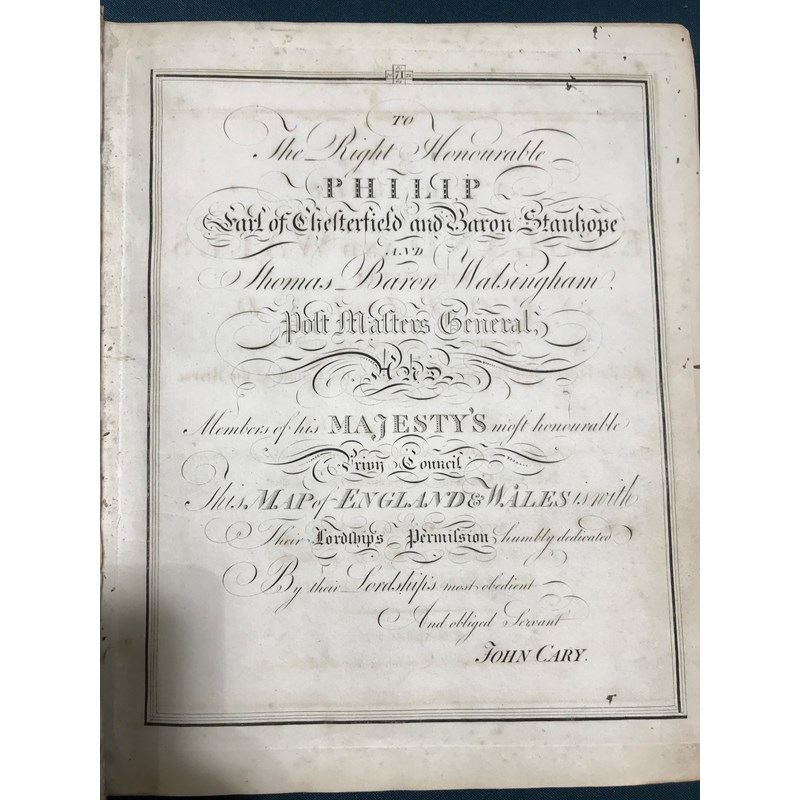 71
TO
The Right Honourable
PHILIP
Earl of Chesterfield and Baron Stanhope
AND
Thomas Baron Walsingham.
Poſt Maſters General,
AND
Members of his MAJESTY'S moſt honourable
Privy Council
This MAP of ENGLAND & WALES is with
Their Lordships Permiſsion humbly dedicated
By their Lordship's most obedient
And obliged Servant
JOHN CARY.